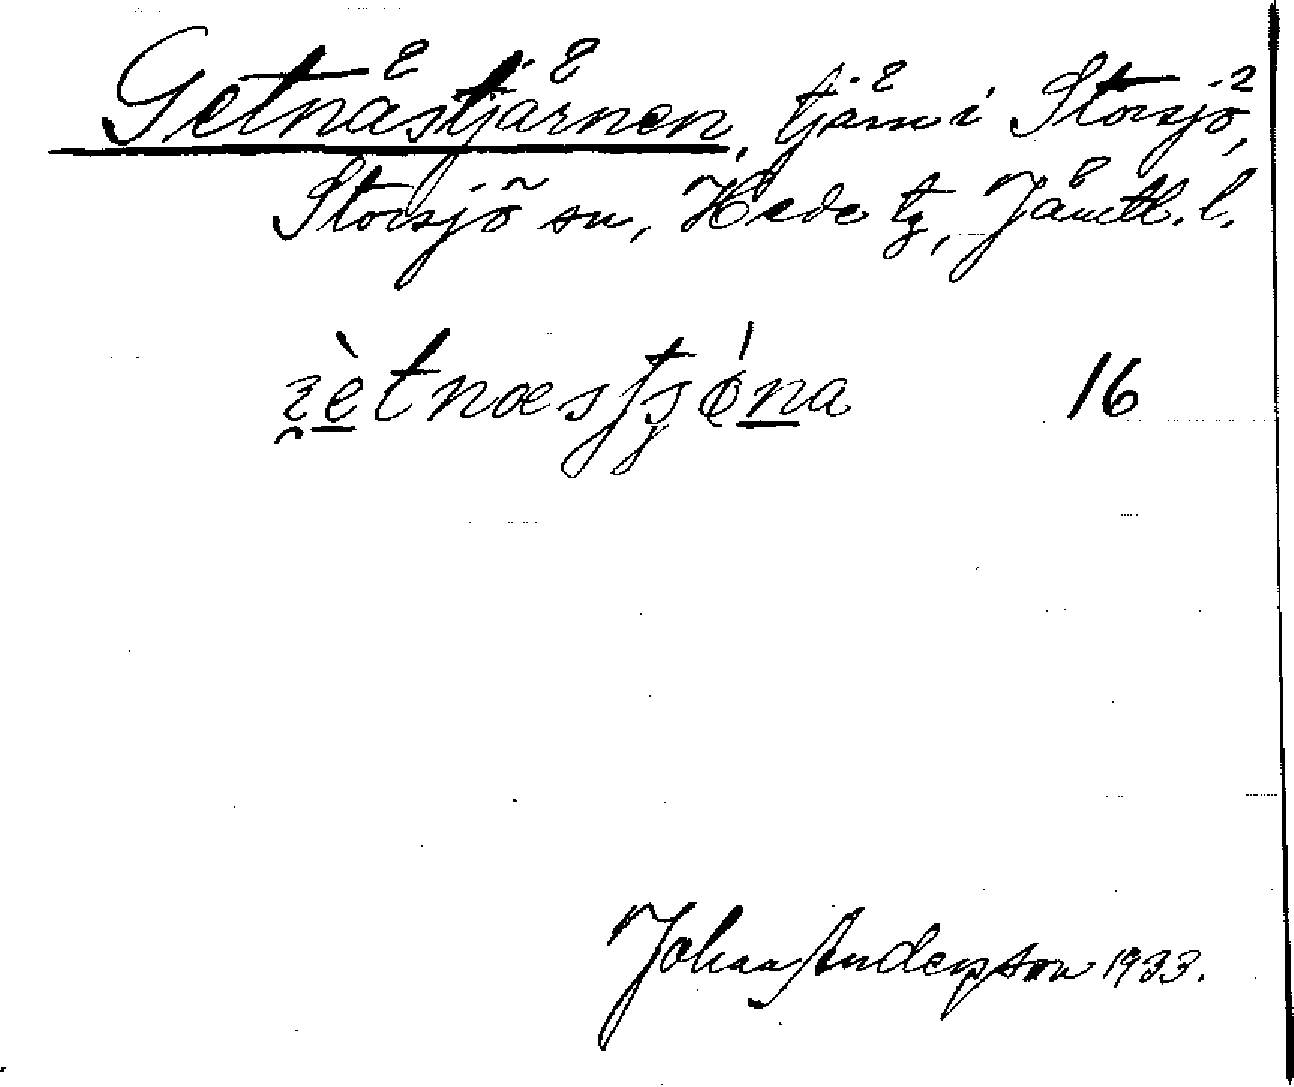 Getnästjärnen, tjärn i Storsjö,
Storsjö sn, Hede tg, Jämtl. l.
16
Johan Anderson 1933.